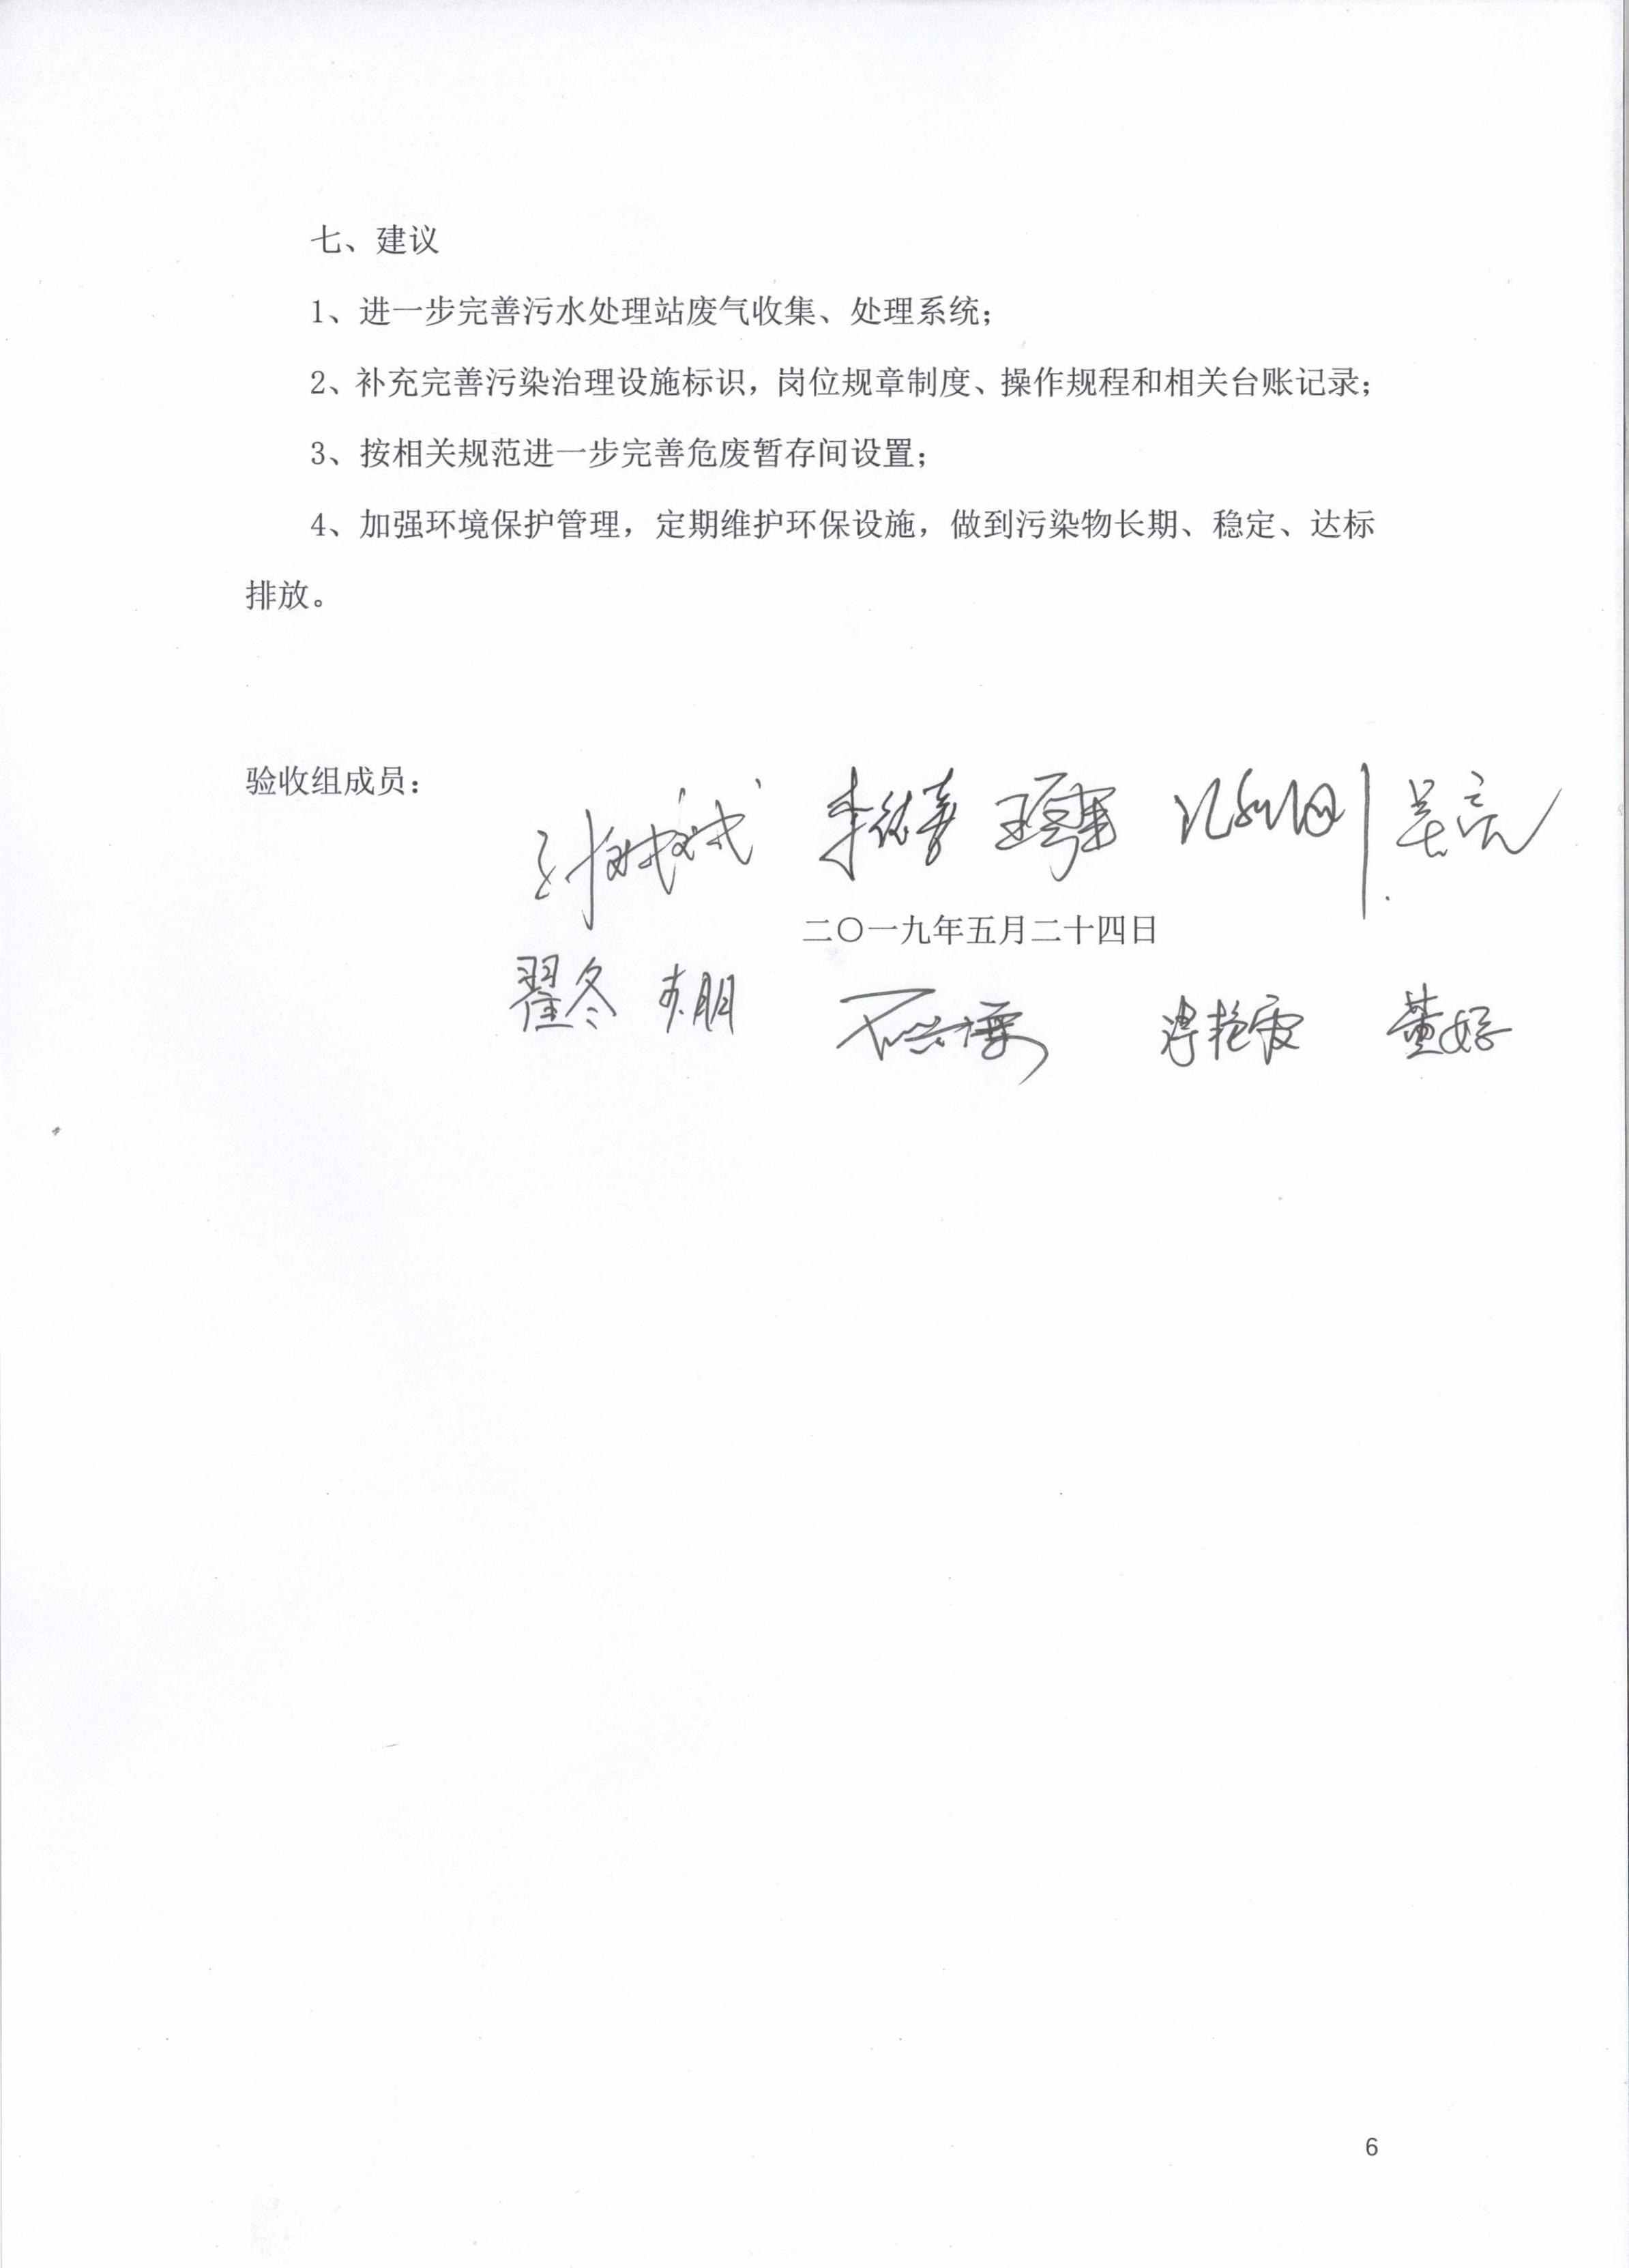 七、建议
1、进一步完善污水处理站废气收集、处理系统；
2、补充完善污染治理设施标识，岗位规章制度、操作规程和相关台账记录；
3、按相关规范进一步完善危废暂存间设置；
4、加强环境保护管理，定期维护环保设施，做到污染物长期、稳定、达标
排放。
验收组成员：
吴亮
二〇一九年五月二十四日
翟冬 董好
6